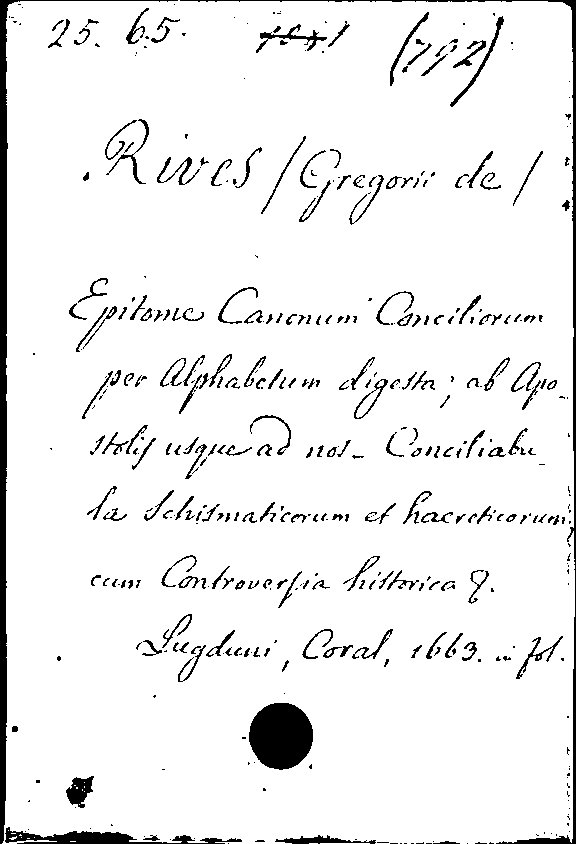 25. 65. (792)
Rives / Gregorii de /
Epitome Canonum Conciliorum
per Alphabetum digesta; ab Apo_
stolis usque ad nos_ Conciliabu_
la Schismaticorum et haereticorum,
cum Controversia historica &.
Lugduni, Coral, 1663. in fol.